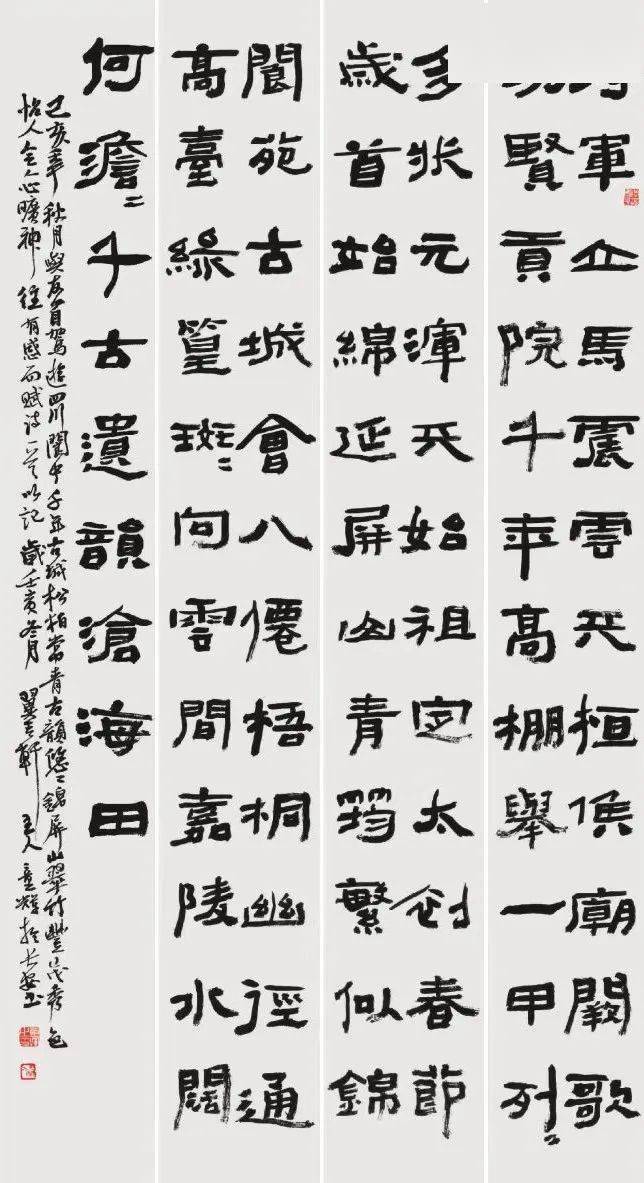 軍立馬震雲天桓侯廟闕歌
賢貢院千年高棚舉一甲列〻
多狀元渾天始祖定太初春節
歲首始綿延屏山青筠繁似錦
閬苑古城會八僊梧桐幽徑通
高臺綠篁斑〻向雲間嘉陵水闊
何澹〻千古遺韻滄海田
己亥年秋月與友自駕遊四川閬中千年古城松柏常青古韻悠〻錦屏山翠竹豐茂秀色
怡人令人心曠神往有感而賦詩一首以記歲壬寅冬月翼雲軒主人童輝於長安書